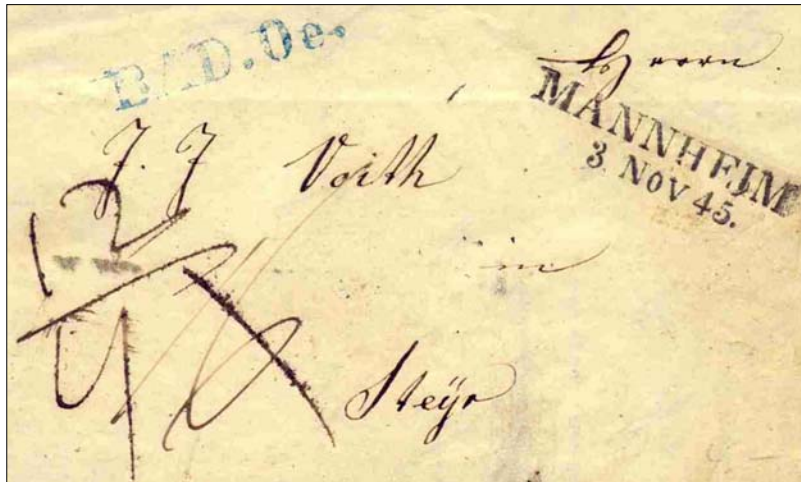 BAD.Oe.
Herrn
MANNHEIM
3 NOV 45.
J. J Voith
in
Steÿr
12